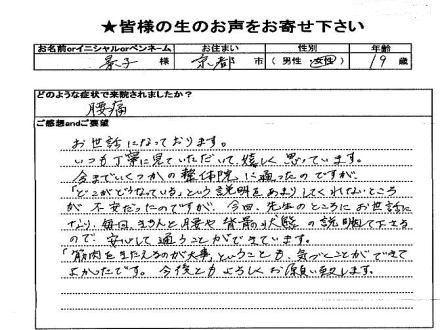 ★皆様の生のお声をお寄せ下さい
お名前orイニシャルorペンネーム お住まい 性別 年齢
景子 様 京都 市 (男性 女性) 19 歳
どのような症状で来院されましたか?
腰痛
ご感想andご要望
お世話になっております。
いつも丁寧に見ていただいて嬉しく思っています。
今までいくつかの整体院に通ったのですが、
「どこがどうなっている」という説明をあまりしてくれないところ
が不安だったのですが、今回、先生のところにお世話に
なり、毎回、きちんと腰や背骨の状態の説明して下さる
ので、安心して通うことができています。
「筋肉をきたえるのが大事」ということも、気づくことができて
よかったです。今後ともよろしくお願い致します。